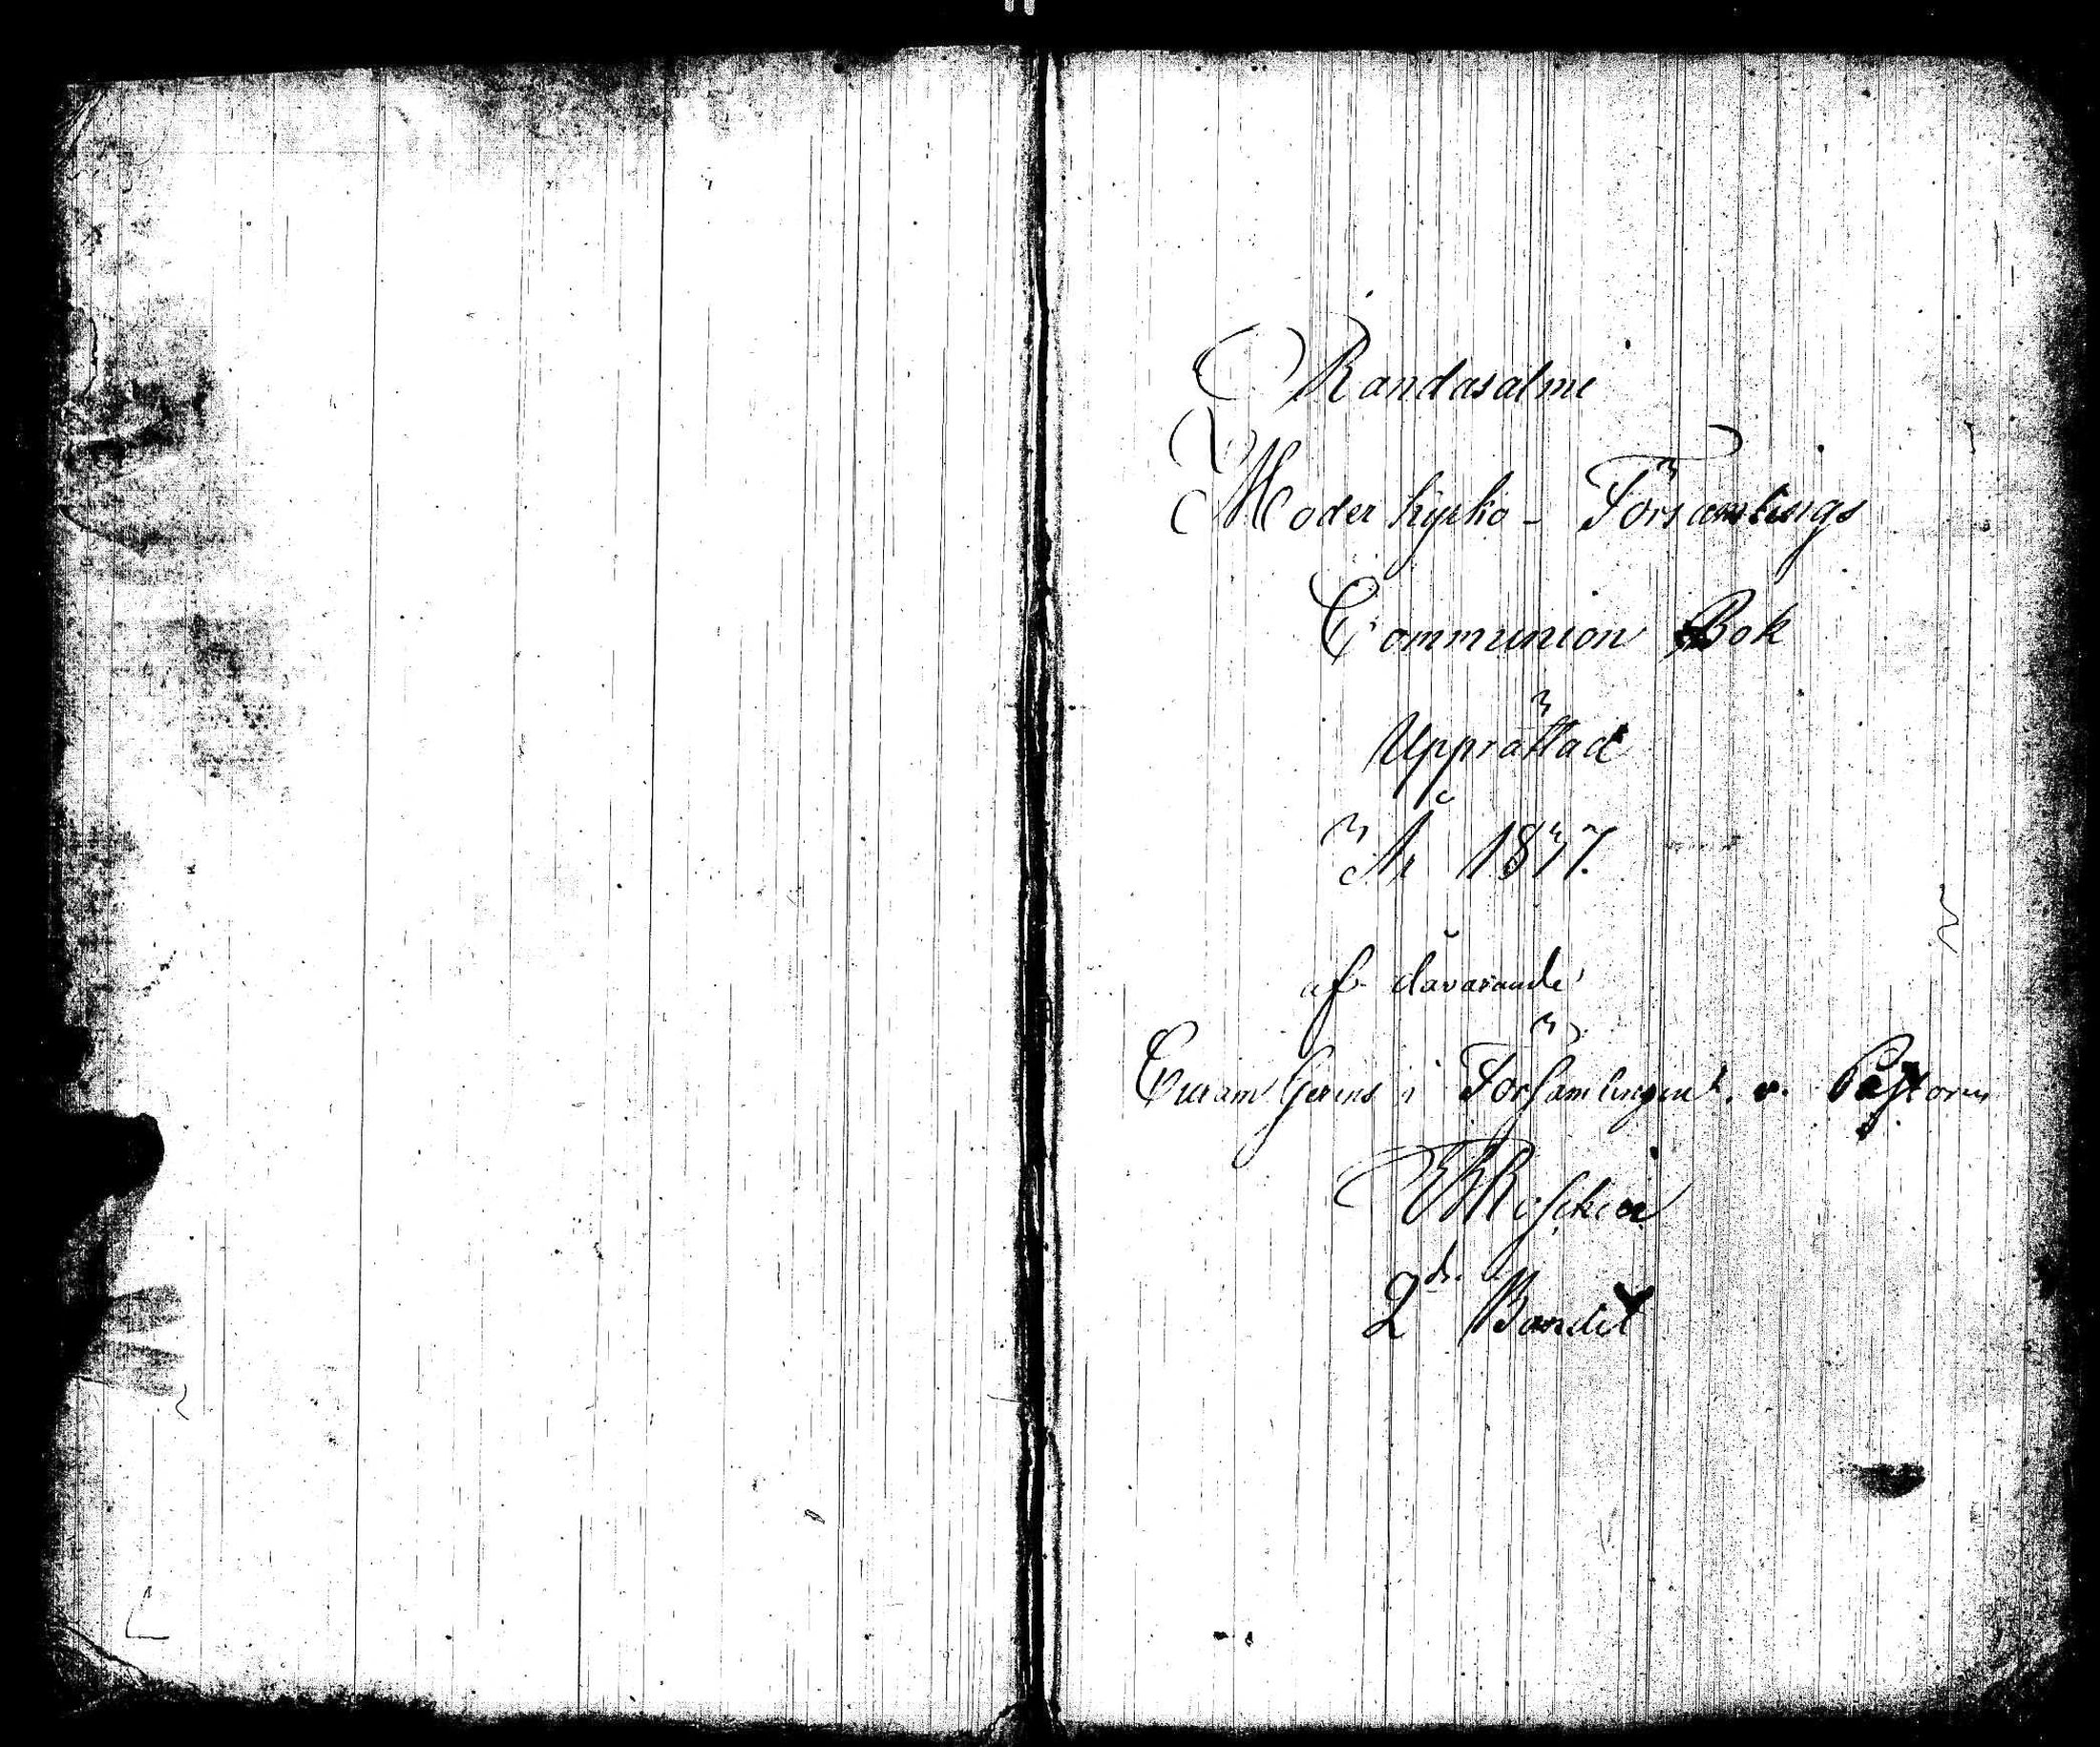 Randasalmi
Moderkyrko - Församlings
Communion Bok
Upprättad
År 1837.
af dåvarande
Curam Gerens i Församlingen v. Pastorn
2dra Bandet